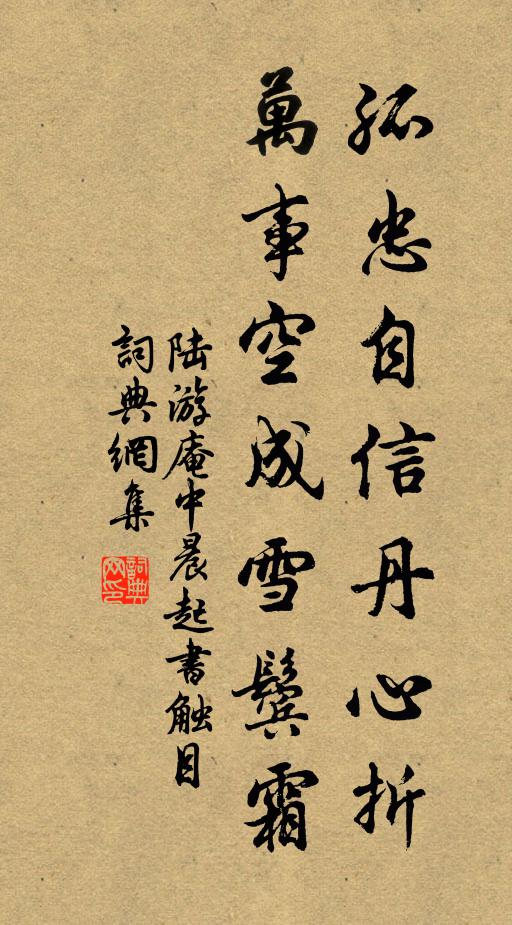 孤忠自信丹心折
萬事空成雪鬢霜
陆游庵中晨起書触目
詞典網集
詞典网印